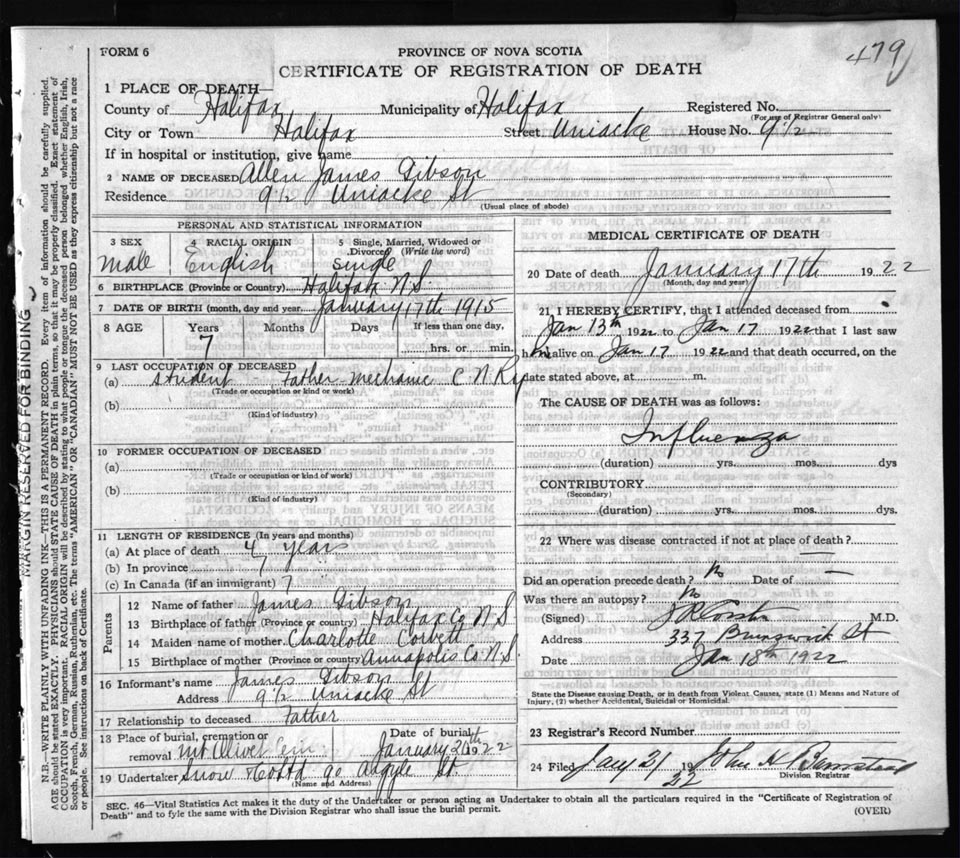 479
FORM 6
PROVINCE OF NOVA SCOTIA
CERTIFICATE OF REGISTRATION OF DEATH
1 PLACE OF DEATH—
County of Halifax Municipality of Halifax Registered No.
(For use of Registrar General only)
City or Town Halifax Street Uniacke House No. 9½
If in hospital or institution, give name
2 NAME OF DECEASED Allen James Gibson
Residence 9½ Uniacke St
(Usual place of abode)
PERSONAL AND STATISTICAL INFORMATION
3 SEX 4 RACIAL ORIGIN 5 Single, Married, Widowed or Divorced (Write the word)
male English single
6 BIRTHPLACE (Province or Country) Halifax N.S.
7 DATE OF BIRTH (month, day and year) January 17th 1915
8 AGE Years Months Days If less than one day,
7 hrs. or min.
9 LAST OCCUPATION OF DECEASED
(a) student Father mechanic C N Ry
(Trade or occupation or kind or work)
(b)
(Kind of industry)
10 FORMER OCCUPATION OF DECEASED
(a)
(Trade or occupation or kind of work)
(b)
(Kind of industry)
11 LENGTH OF RESIDENCE (In years and months)
(a) At place of death 4 years
(b) In province 7
(c) In Canada (if an immigrant) 7
Parents
12 Name of father James Gibson
13 Birthplace of father (Province or country) Halifax Co N S
14 Maiden name of mother Charlotte Corbett
15 Birthplace of mother (Province or country) Annapolis Co. N.S
16 Informant's name James Gibson
Address 9½ Uniacke St
17 Relationship to deceased Father
18 Place of burial, cremation or removal Mt Olivet Cem Date of burial January 1922
19 Undertaker Snow Co Ltd 90 Argyle St
(Name and Address)
MEDICAL CERTIFICATE OF DEATH
20 Date of death January 17th 1922
(Month, day and year)
21 I HEREBY CERTIFY, that I attended deceased from
Jan 13th 1922 to Jan 17 1922 that I last saw
him alive on Jan 17 1922 and that death occurred, on the
date stated above, at m.
The CAUSE OF DEATH was as follows:
Influenza
(duration) yrs. mos. dys
CONTRIBUTORY
(Secondary)
(duration) yrs. mos. dys.
22 Where was disease contracted if not at place of death? —
Did an operation precede death? No Date of —
Was there an autopsy? No
(Signed) M.D.
Address 337 Brunswick St
Date Jan 18th 1922
State the Disease causing Death, or in death from Violent Causes, state (1) Means and Nature of
Injury, (2) whether Accidental, Suicidal or Homicidal.
23 Registrar's Record Number
24 Filed Jany 21 1922 John H Barnstead
Division Registrar
SEC. 46—Vital Statistics Act makes it the duty of the Undertaker or person acting as Undertaker to obtain all the particulars required in the "Certificate of Registration of
Death" and to fyle the same with the Division Registrar who shall issue the burial permit. (OVER)
MARGIN RESERVED FOR BINDING
N.B.—WRITE PLAINLY WITH UNFADING INK—THIS IS A PERMANENT RECORD. Every item of information should be carefully supplied.
AGE should be stated EXACTLY. PHYSICIANS should STATE CAUSE OF DEATH in plain terms, so that it may be properly classified. Exact statement of
OCCUPATION is very important. RACIAL ORIGIN will be described by stating to what people or tongue the deceased person belonged whether English, Irish,
Scotch, French, German, Russian, Ruthenian, etc. The terms "AMERICAN" or "CANADIAN" MUST NOT BE USED as they express citizenship but not a race
or people. See instructions on back of Certificate.